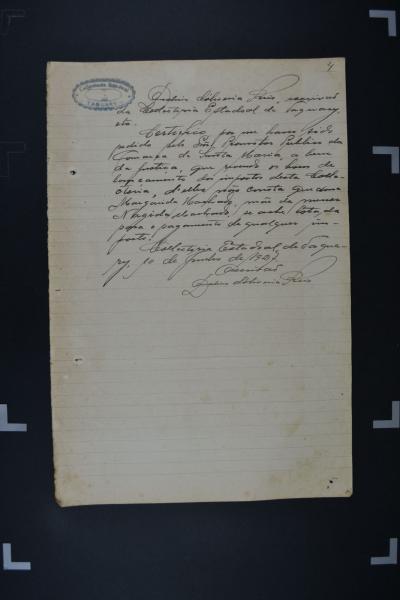 4
Collectoria Estadual
TAQUARY
Oliveira Reis, escrivão
da Collectoria Estadual de Taquary,
etc.
Certifico, por me haver sido
pedido pelo Snr. Promotor Publico da
Comarca de Santa Maria, a bem
da justiça, que revendo os livros de
lançamentos dos impostos desta Colle-
ctoria, d'elles não consta que dona
Margarida Machado, mãe da menor
Machado, se ache lotada
para o pagamento de qualquer im-
posto.
Collectoria Estadual de Taqua-
ry, 10 de Junho de 1927.
Escrivão
Oliveira Reis